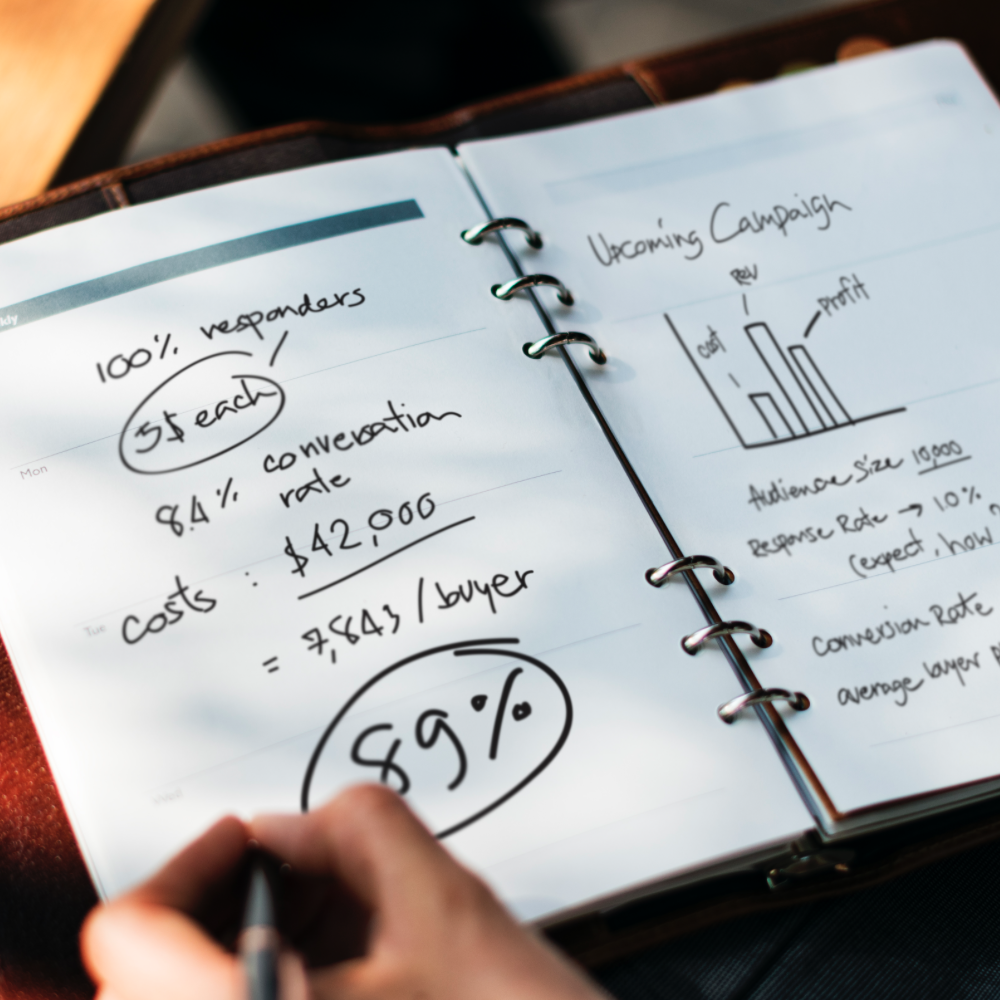 100% responders
5$ each
8.4% conversation
rate
costs : $42,000
= 7,843 / buyer
89%
Mon
Tue
Upcoming Campaign
Rev
Profit
cost
Audience Size 10,000
Response Rate → 1.0%
(expect, how
Conversion Rate
average buyer